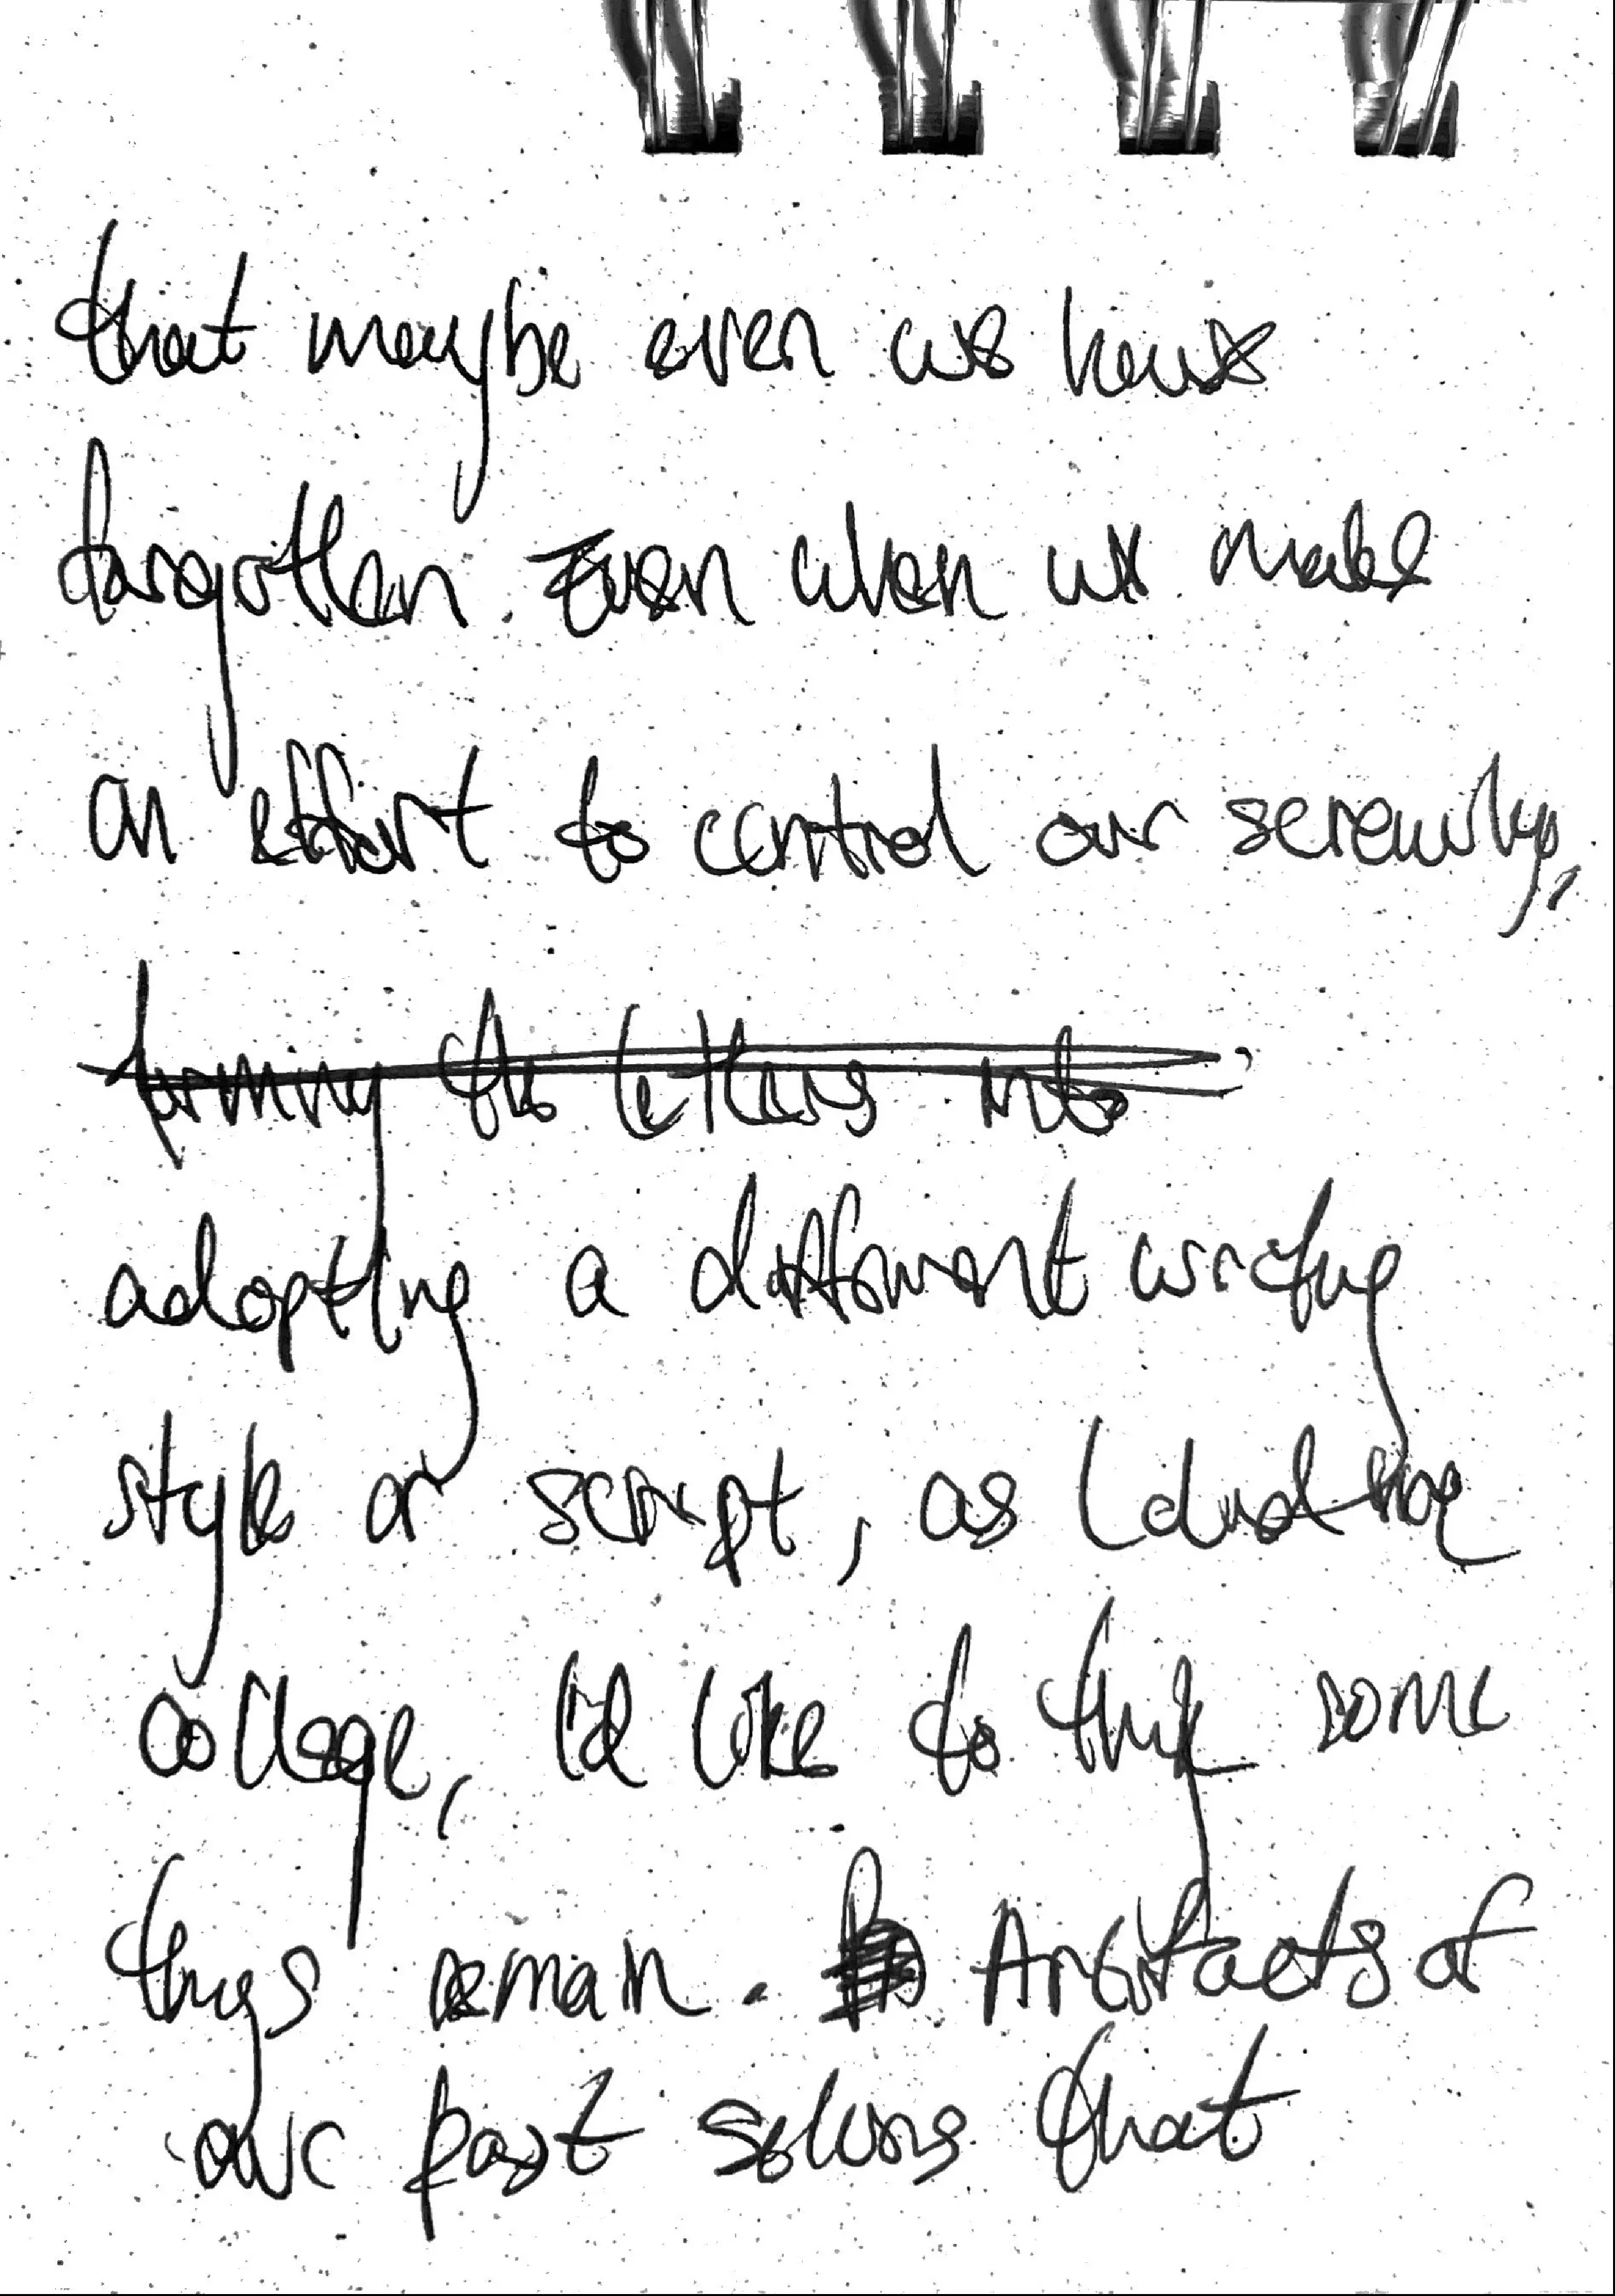 that maybe even we have
forgotten. Even when we make
an effort to control our serenity,
forming the letters into
adopting a different writing
style or script, as I did
college, I'd like to think some
things remain. Artifacts of
our past selves that